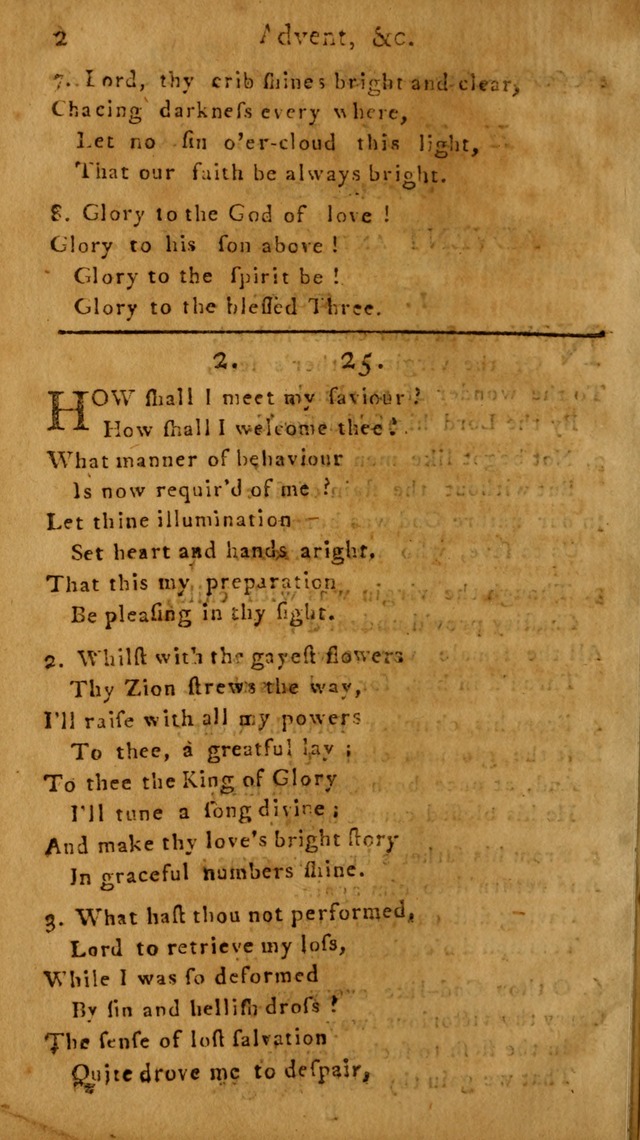 2 Advent, &c.
7. Lord, thy crib ſhines bright and clear,
Chacing darkneſs every where,
Let no ſin o'er-cloud this light,
That our faith be always bright.
8. Glory to the God of love !
Glory to his ſon above !
Glory to the ſpirit be !
Glory to the bleſſed Three.
2. 25.
HOW ſhall I meet my ſaviour ?
How ſhall I welcome thee ?
What manner of behaviour
Is now requir'd of me ?
Let thine illumination
Set heart and hands aright,
That this my preparation
Be pleaſing in thy ſight.
2. Whilſt with the gayeſt flowers
Thy Zion ſtrews the way,
I'll raiſe with all my powers
To thee, a greatful lay ;
To thee the King of Glory
I'll tune a ſong divine ;
And make thy love's bright ſtory
In graceful numbers ſhine.
3. What haſt thou not performed,
Lord to retrieve my loſs,
While I was ſo deformed
By ſin and helliſh droſs ?
The ſenſe of loſt ſalvation
Quite drove me to deſpair,